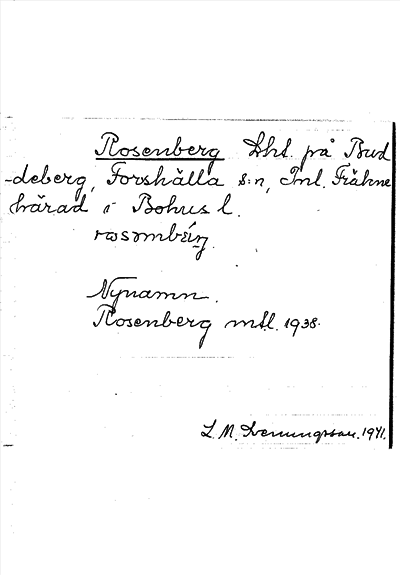 Rosenberg Lht. på Bud
-deberg, Forshälla s:n, Inl. Fräkne
härad i Bohus l.
Nynamn.
Rosenberg mtl. 1938.
L. M. Svenungsson. 1941.